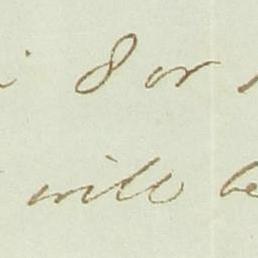 8 or
will be